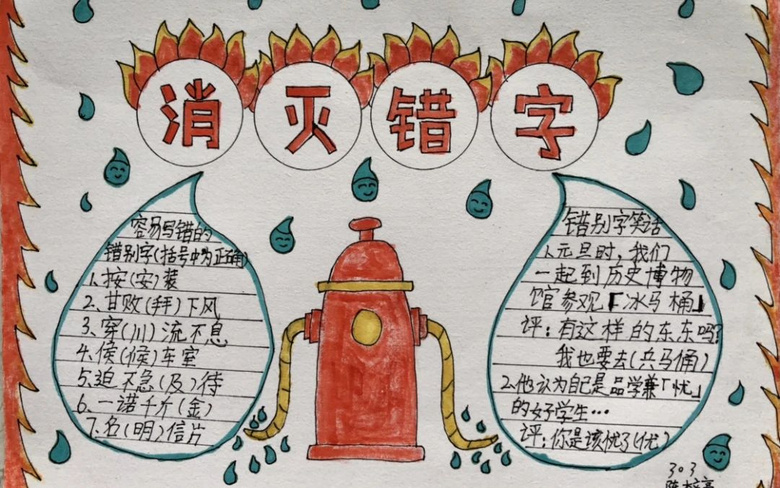 消灭错字
容易写错的
错别字(括号中为正确)
1.按(安)装
2.甘败(拜)下风
3.穿(川)流不息
4.侯(候)车室
5.迫不急(及)待
6.一诺千斤(金)
7.名(明)信片
错别字笑话
1.元旦时，我们
一起到历史博物
馆参观「冰马桶」
评：有这样的东东吗?
我也要去(兵马俑)
2.他认为自己是品学兼「忧」
的好学生…
评：你是该忧了(优)
303